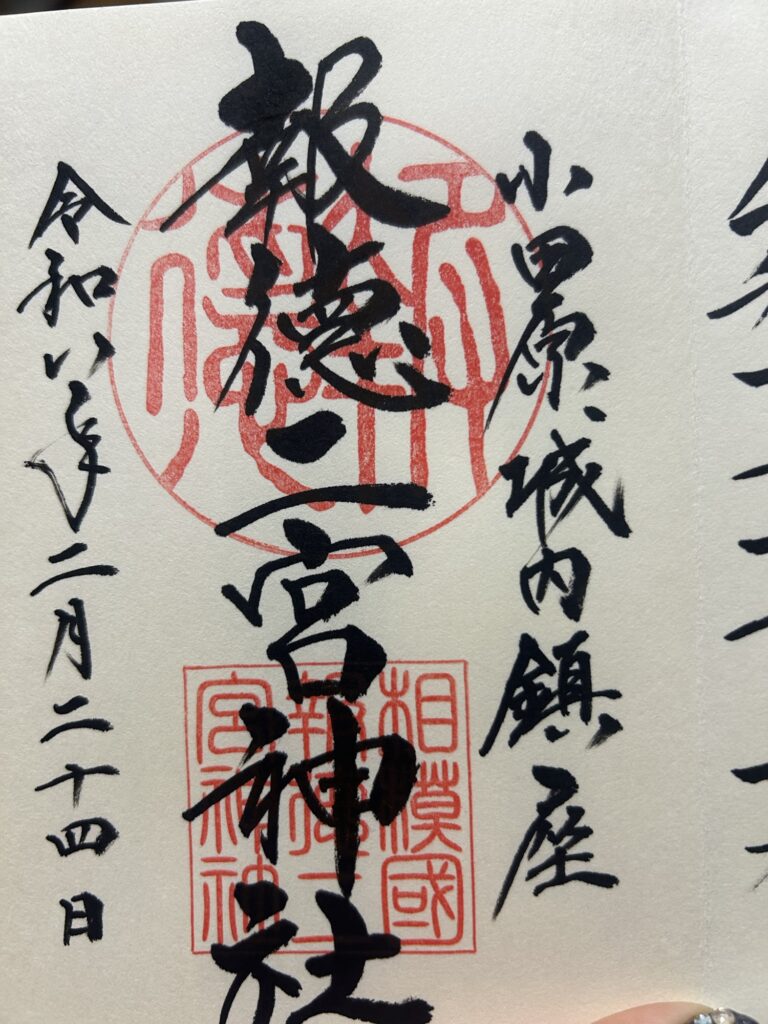 小田原城内鎮座
報徳二宮神社
令和八年二月二十四日
相模國
報徳二
宮神社